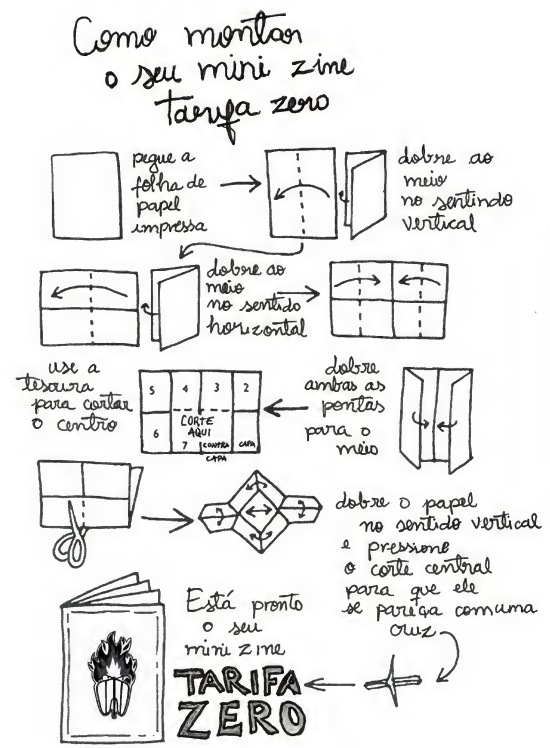 Como montar
o seu mini zine
tarifa zero
pegue a
folha de
papel
impressa
dobre ao
meio
no sentindo
vertical
dobre ao
meio
no sentido
horizontal
dobre
ambas as
pontas
para o
meio
use a
tesoura
para cortar
o centro
5 4 3 2
CORTE
AQUI
6 7 CONTRA CAPA
CAPA
dobre o papel
no sentido vertical
e pressione
o corte central
para que ele
se pareça com uma
cruz
Está pronto
o seu
mini zine
TARIFA
ZERO